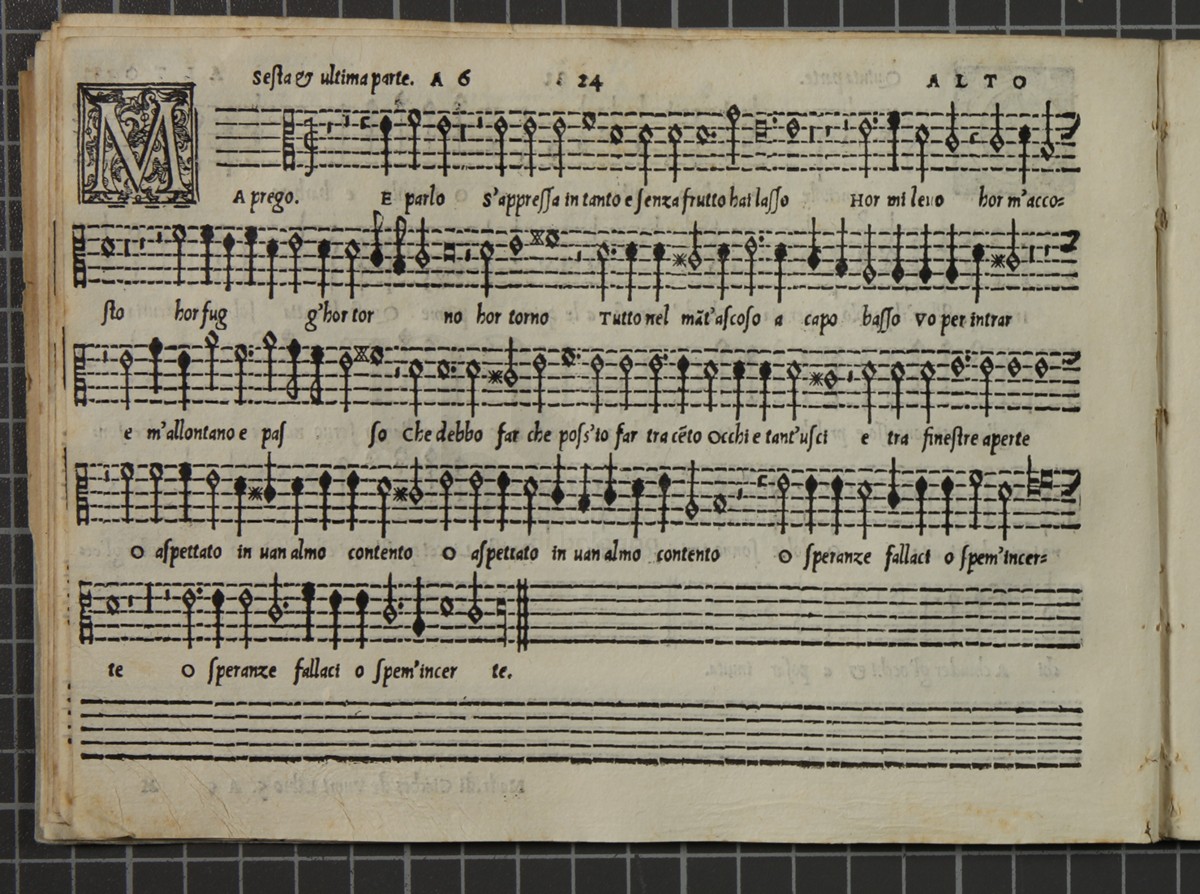 Sesta & ultima parte. A 6 24 ALTO
MA prego. E parlo S'appressa in tanto e senza frutto hai lasso Hor mi levo hor m'acco=
sto hor fug g'hor tor no hor torno Tutto nel māt'ascoso a capo basso Vo per intrar
e m'allontano e pas so Che debbo far che poss'io far tra cēto Occhi e tant'usci e tra finestre aperte
O aspettato in uan almo contento O aspettato in uan almo contento O speranze fallaci o spem'incer=
te O speranze fallaci o spem'incer te.